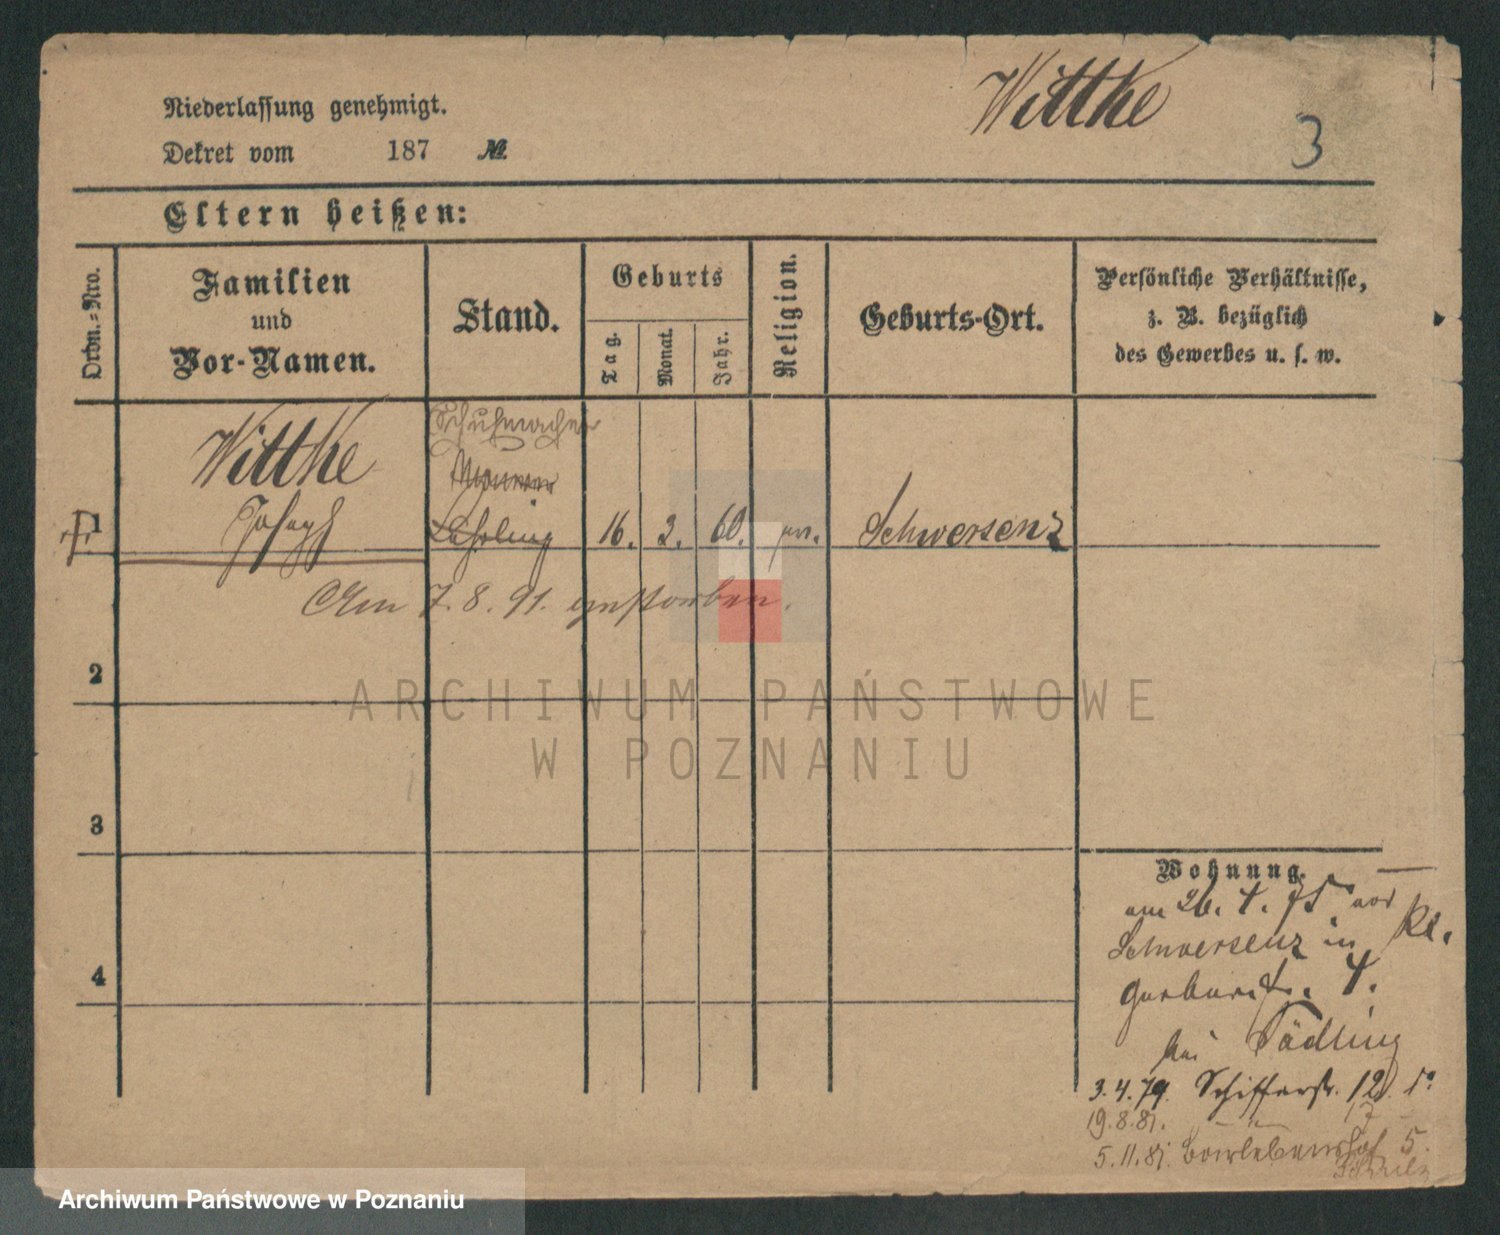 Wittke
3
Niederlassung genehmigt.
Dekret vom 187 №.
Eltern heißen:
Ordn.=Nro.
Familien
und
Vor-Namen.
Stand.
Geburts
Tag.
Monat.
Jahr.
Religion.
Geburts-Ort.
Persönliche Verhältnisse,
z. B. bezüglich
des Gewerbes u. s. w.
Wittke
Schuhmacher
Maurer
1
Joseph
Lehrling
16. 2. 60.
Schwersenz
Am 7. 8. 91. gestorben.
2
3
4
Wohnung.
am 26. 4. 75. von
Schwersenz in Kl.
Gerberstr. 4.
bei Tädling
3.4.79. Schifferstr. 12
19.8.81. — " — 17
5.11.81. 5.
ARCHIWUM PAŃSTWOWE
W POZNANIU
Archiwum Państwowe w Poznaniu